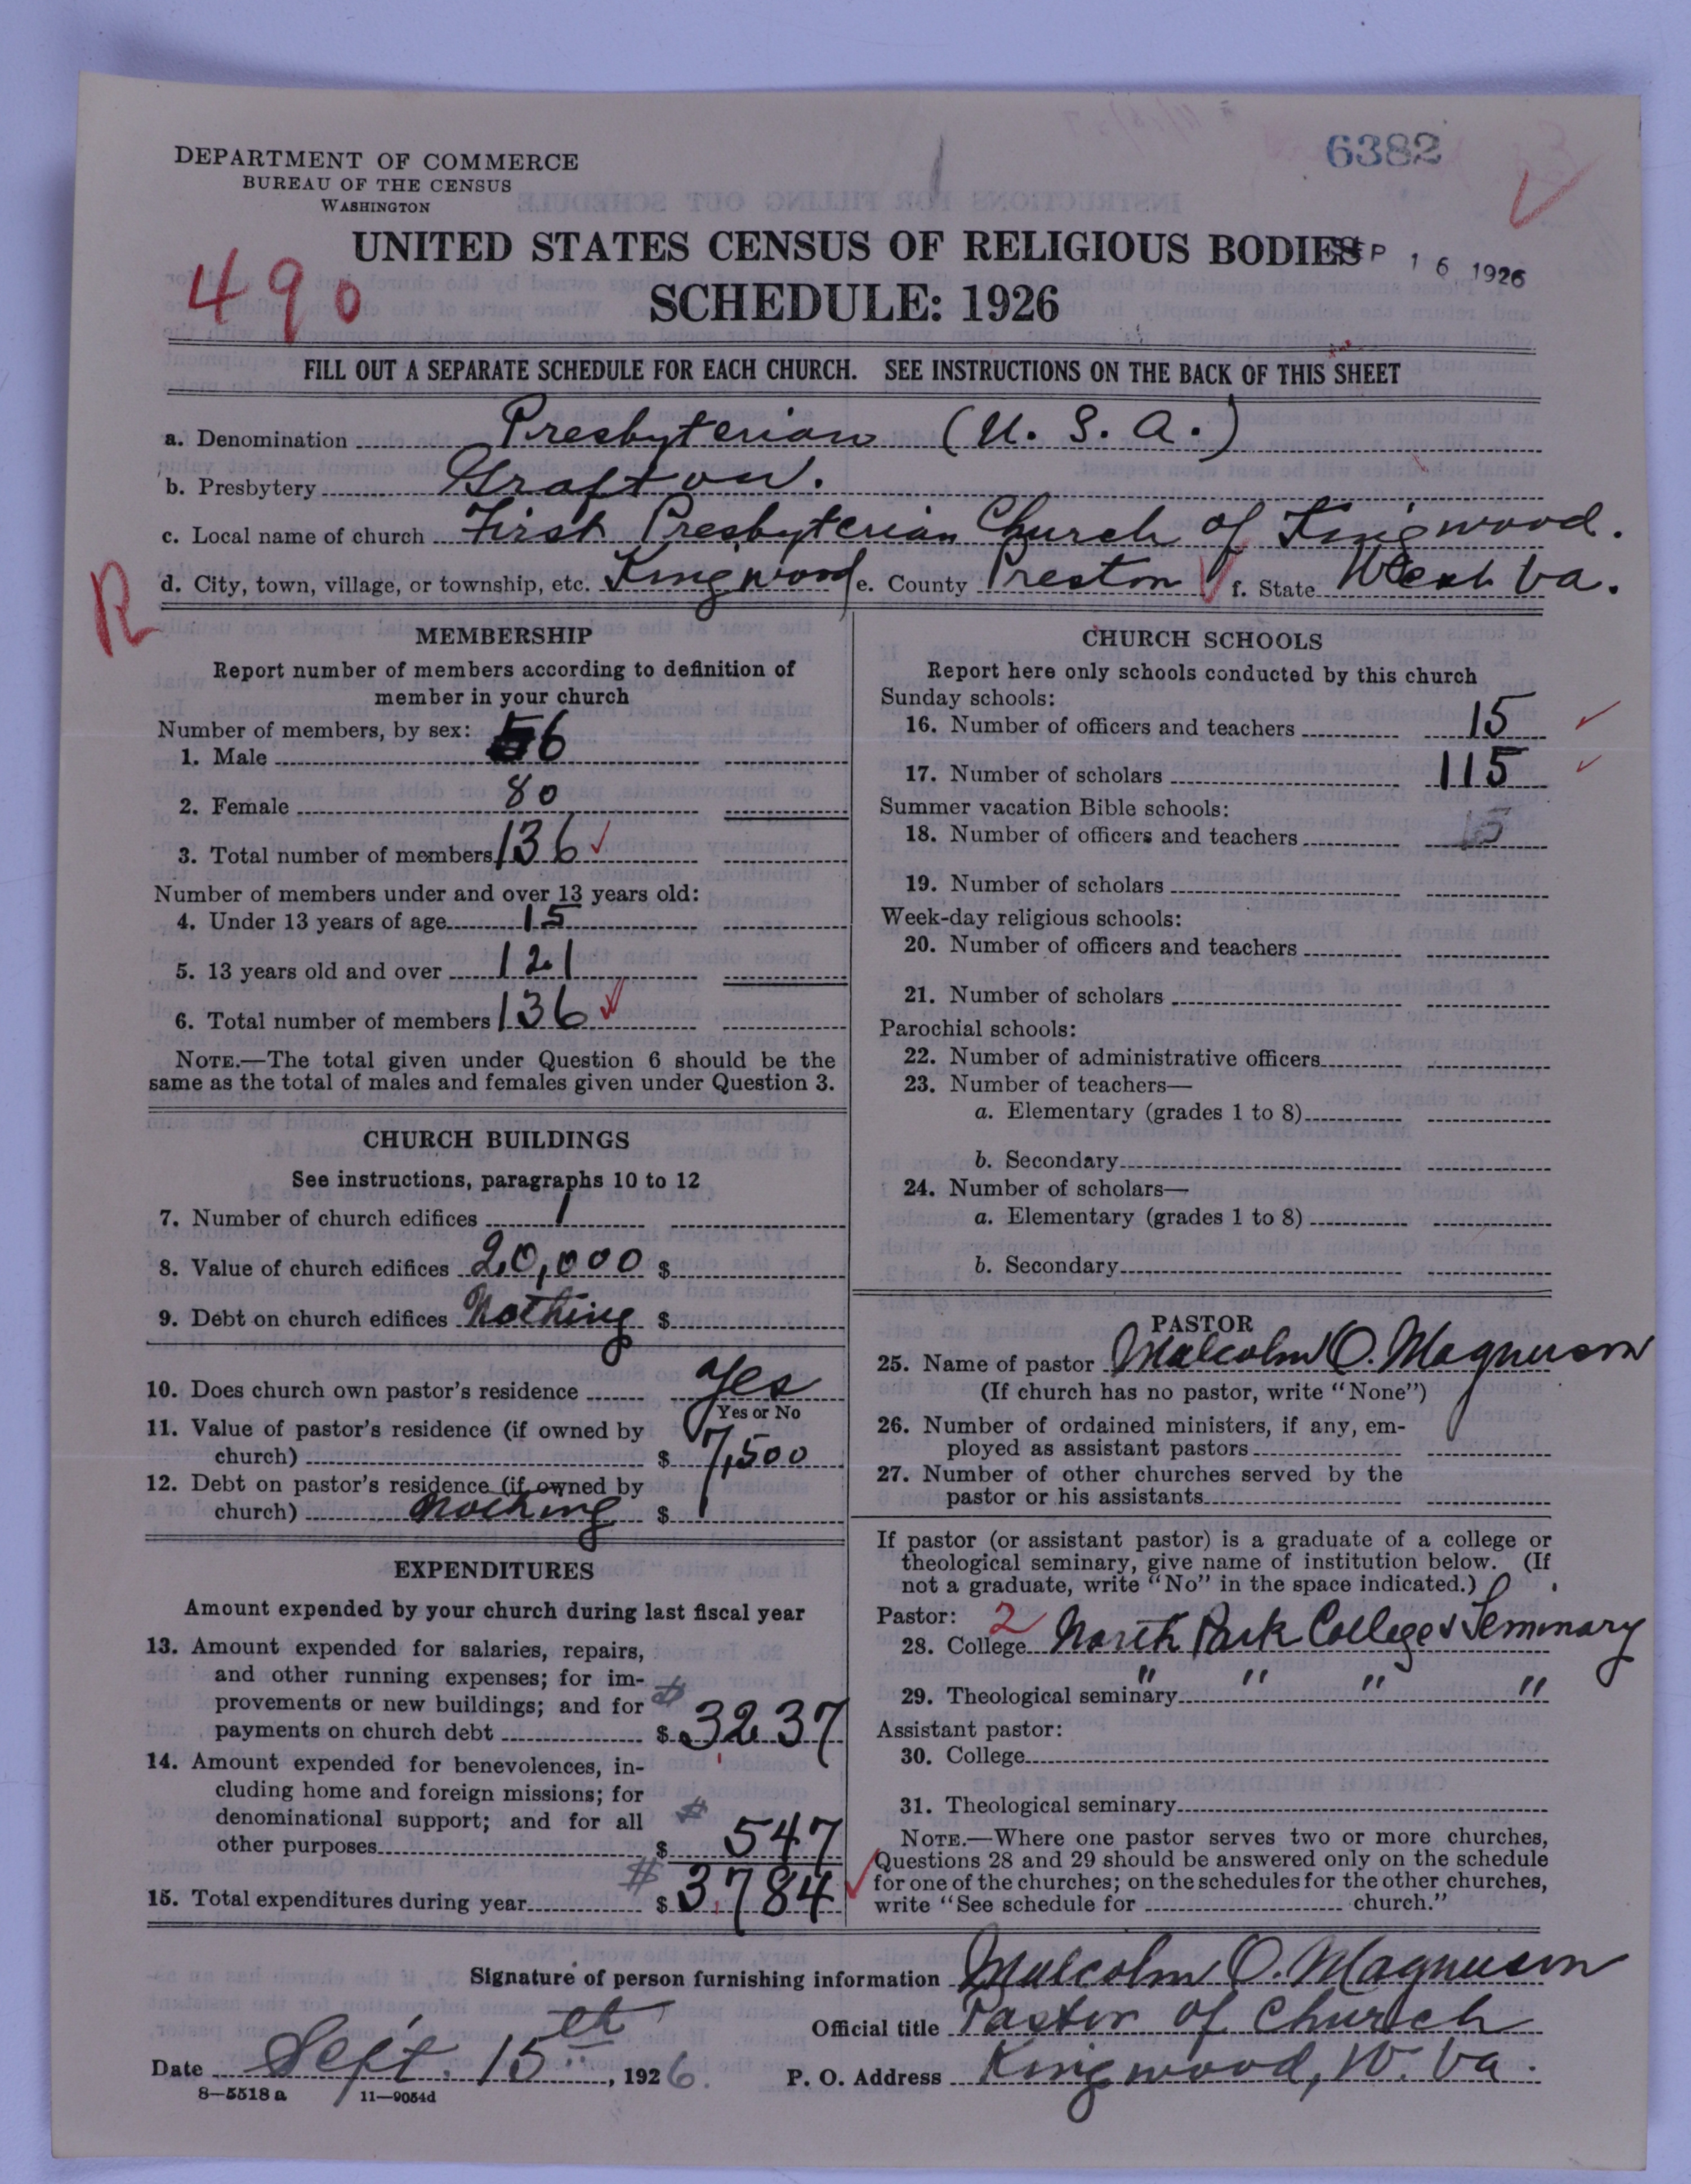 6382
DEPARTMENT OF COMMERCE
BUREAU OF THE CENSUS
WASHINGTON
UNITED STATES CENSUS OF RELIGIOUS BODIES
SEP 16 1926
490
SCHEDULE: 1926
FILL OUT A SEPARATE SCHEDULE FOR EACH CHURCH. SEE INSTRUCTIONS ON THE BACK OF THIS SHEET
a. Denomination Presbyterian (U. S. A.)
b. Presbytery Grafton.
c. Local name of church First Presbyterian Church of Kingwood.
d. City, town, village, or township, etc. Kingwood e. County Preston f. State West Va.
R
MEMBERSHIP
Report number of members according to definition of
member in your church
Number of members, by sex:
1. Male 56
2. Female 80
3. Total number of members 136
Number of members under and over 13 years old:
4. Under 13 years of age 15
5. 13 years old and over 121
6. Total number of members 136
NOTE.—The total given under Question 6 should be the
same as the total of males and females given under Question 3.
CHURCH BUILDINGS
See instructions, paragraphs 10 to 12
7. Number of church edifices 1
8. Value of church edifices 20,000 $
9. Debt on church edifices Nothing $
10. Does church own pastor's residence Yes
Yes or No
11. Value of pastor's residence (if owned by
church) $ 7,500
12. Debt on pastor's residence (if owned by
church) nothing $
EXPENDITURES
Amount expended by your church during last fiscal year
13. Amount expended for salaries, repairs,
and other running expenses; for im-
provements or new buildings; and for
payments on church debt $ 3237
14. Amount expended for benevolences, in-
cluding home and foreign missions; for
denominational support; and for all
other purposes $ 547
15. Total expenditures during year $ 3,784
CHURCH SCHOOLS
Report here only schools conducted by this church
Sunday schools:
16. Number of officers and teachers 15
17. Number of scholars 115
Summer vacation Bible schools:
18. Number of officers and teachers
19. Number of scholars
Week-day religious schools:
20. Number of officers and teachers
21. Number of scholars
Parochial schools:
22. Number of administrative officers
23. Number of teachers—
a. Elementary (grades 1 to 8)
b. Secondary
24. Number of scholars—
a. Elementary (grades 1 to 8)
b. Secondary
PASTOR
25. Name of pastor Malcolm O. Magnuson
(If church has no pastor, write "None")
26. Number of ordained ministers, if any, em-
ployed as assistant pastors
27. Number of other churches served by the
pastor or his assistants
If pastor (or assistant pastor) is a graduate of a college or
theological seminary, give name of institution below. (If
not a graduate, write "No" in the space indicated.)
Pastor: 2
28. College North Park College & Seminary
29. Theological seminary " " " "
Assistant pastor:
30. College
31. Theological seminary
NOTE.—Where one pastor serves two or more churches,
Questions 28 and 29 should be answered only on the schedule
for one of the churches; on the schedules for the other churches,
write "See schedule for church."
Signature of person furnishing information Malcolm O. Magnuson
Official title Pastor of Church
Date Sept. 15th, 1926. P. O. Address Kingwood, W. Va.
8-5518a 11-9054d